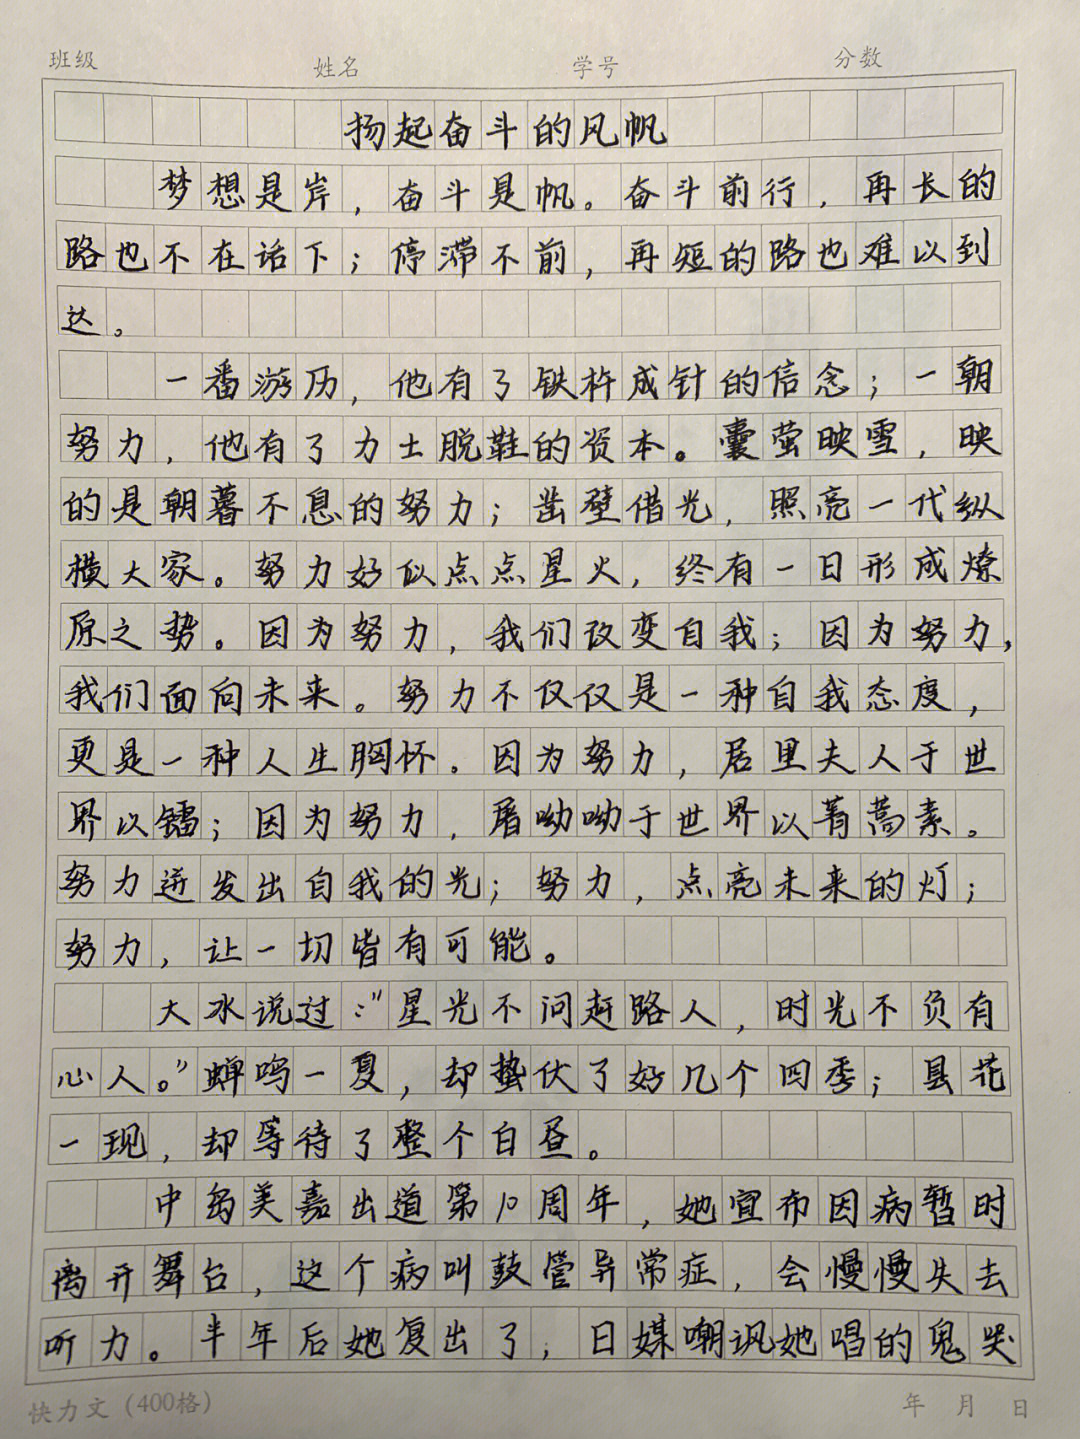 班级 姓名 学号 分数
扬起奋斗的风帆
梦想是岸，奋斗是帆。奋斗前行，再长的
路也不在话下；停滞不前，再短的路也难以到
达。
一番游历，他有了铁杵成针的信念；一朝
努力，他有了力士脱鞋的资本。囊萤映雪，映
的是朝暮不息的努力；凿壁借光，照亮一代纵
横大家。努力好似点点星火，终有一日形成燎
原之势。因为努力，我们改变自我；因为努力，
我们面向未来。努力不仅仅是一种自我态度，
更是一种人生胸怀。因为努力，居里夫人于世
界以镭；因为努力，屠呦呦于世界以菁蒿素。
努力迸发出自我的光；努力，点亮未来的灯；
努力，让一切皆有可能。
大冰说过："星光不问赶路人，时光不负有
心人。"蝉鸣一夏，却蛰伏了好几个四季；昙花
一现，却等待了整个白昼。
中岛美嘉出道第10周年，她宣布因病暂时
离开舞台，这个病叫鼓管异常症，会慢慢失去
听力。半年后她复出了，日媒嘲讽她唱的鬼哭
快力文（400格） 年 月 日